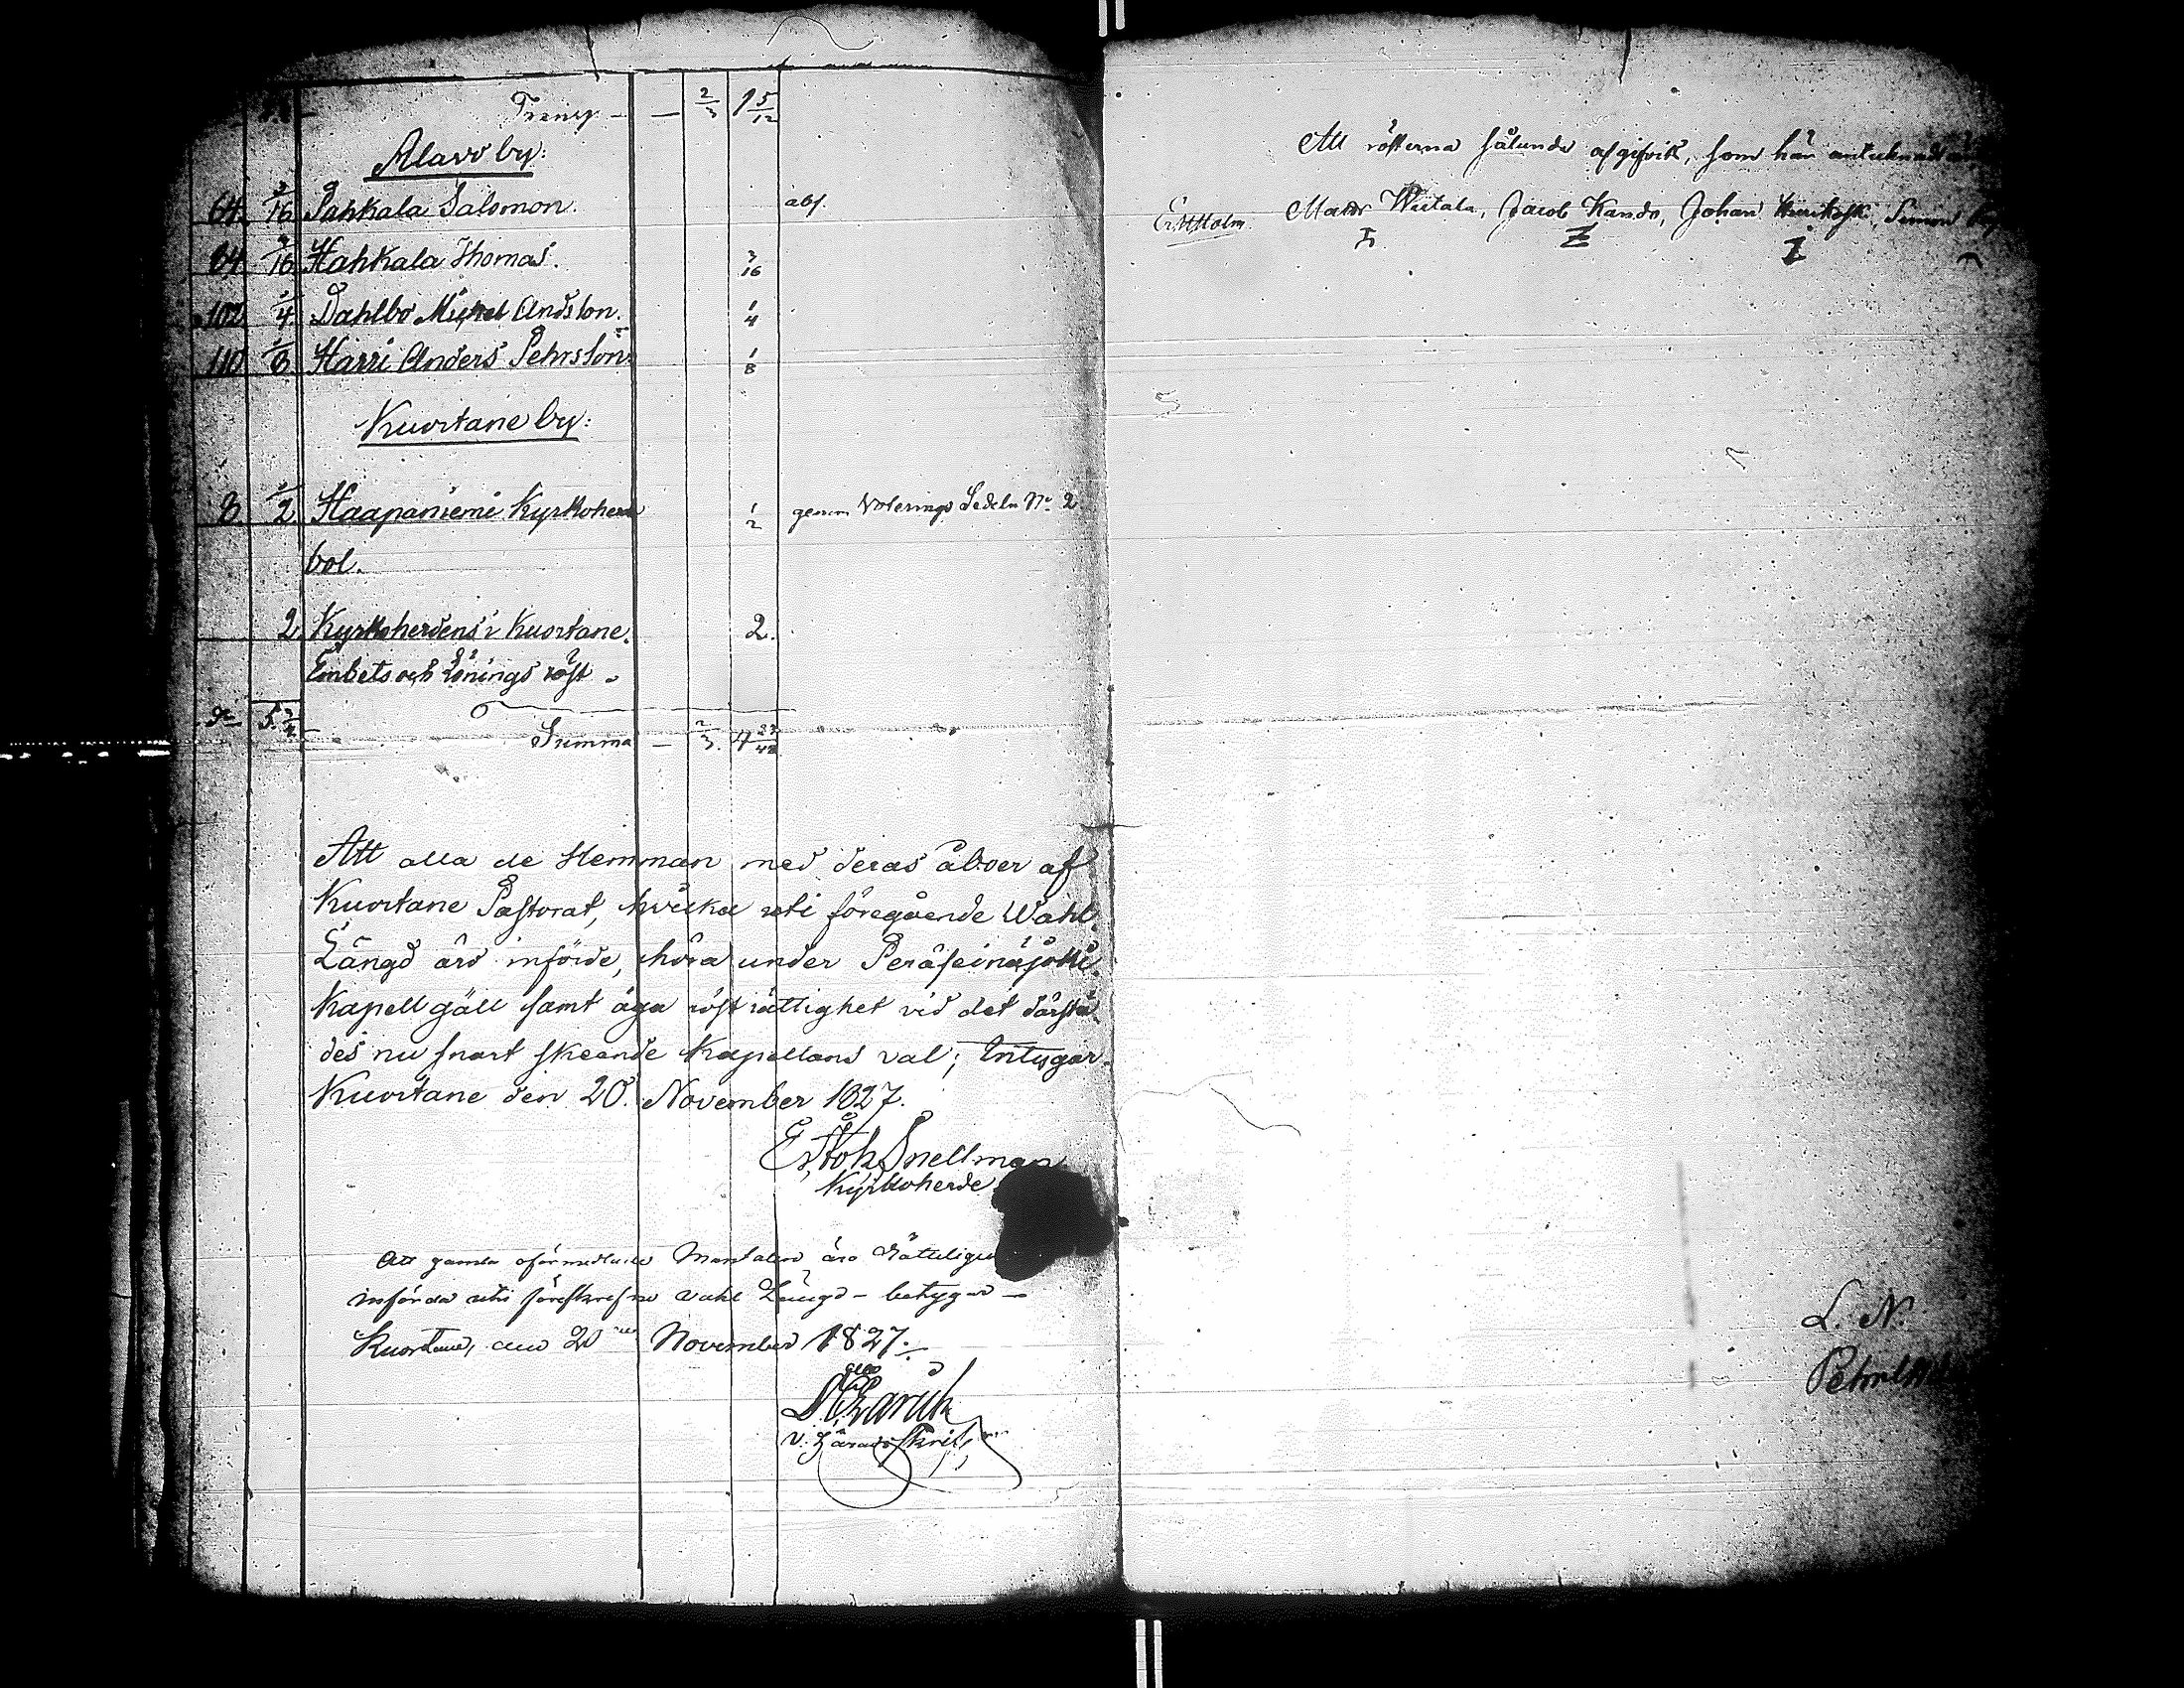 Transp — — 2/3 1 5/12
Alavo by:
64. 3/16 Pahkala Salomon. abs.
64 3/16 Hahkala Thomas. 3/16
102 1/4 Dahlbo Mickel Andsson. 1/4
110 1/8 Harri Anders Pehrsson 1/8
Kuortane by:
8. 1/2 Haapaniemi Kyrkoherde 1/2 genom Voterings Sedeln No 2
bol.
2 Kyrkoherdens i Kuortane. 2.
Embets och Lönings röst
Summa — 2/3. 4 23/48
Att alla de Hemman med deras åboer af
Kuortane Pastorat, hvilka uti föregående Wahl
Längd äro införde, höra under Peräseinäjoki
Kapellgäll samt äga röst rättighet vid det därstä-
des nu snart skeende Kapellans val; Intygar.
Kuortane den 20. November 1827.
Snellman
Kyrkoherde
Att gamla oförmedlade Mantalen äro Rätteligen
införda uti föreskrefne Vahl Längd – betygar –
Kuortane, den 20 November 1827.
v. Häradsskrif
Att rösterna sålunda afgifvit, som här antecknadt
Er. Holm. Matts Wiitala, Jacob Kando, Johan Simon
L. N.